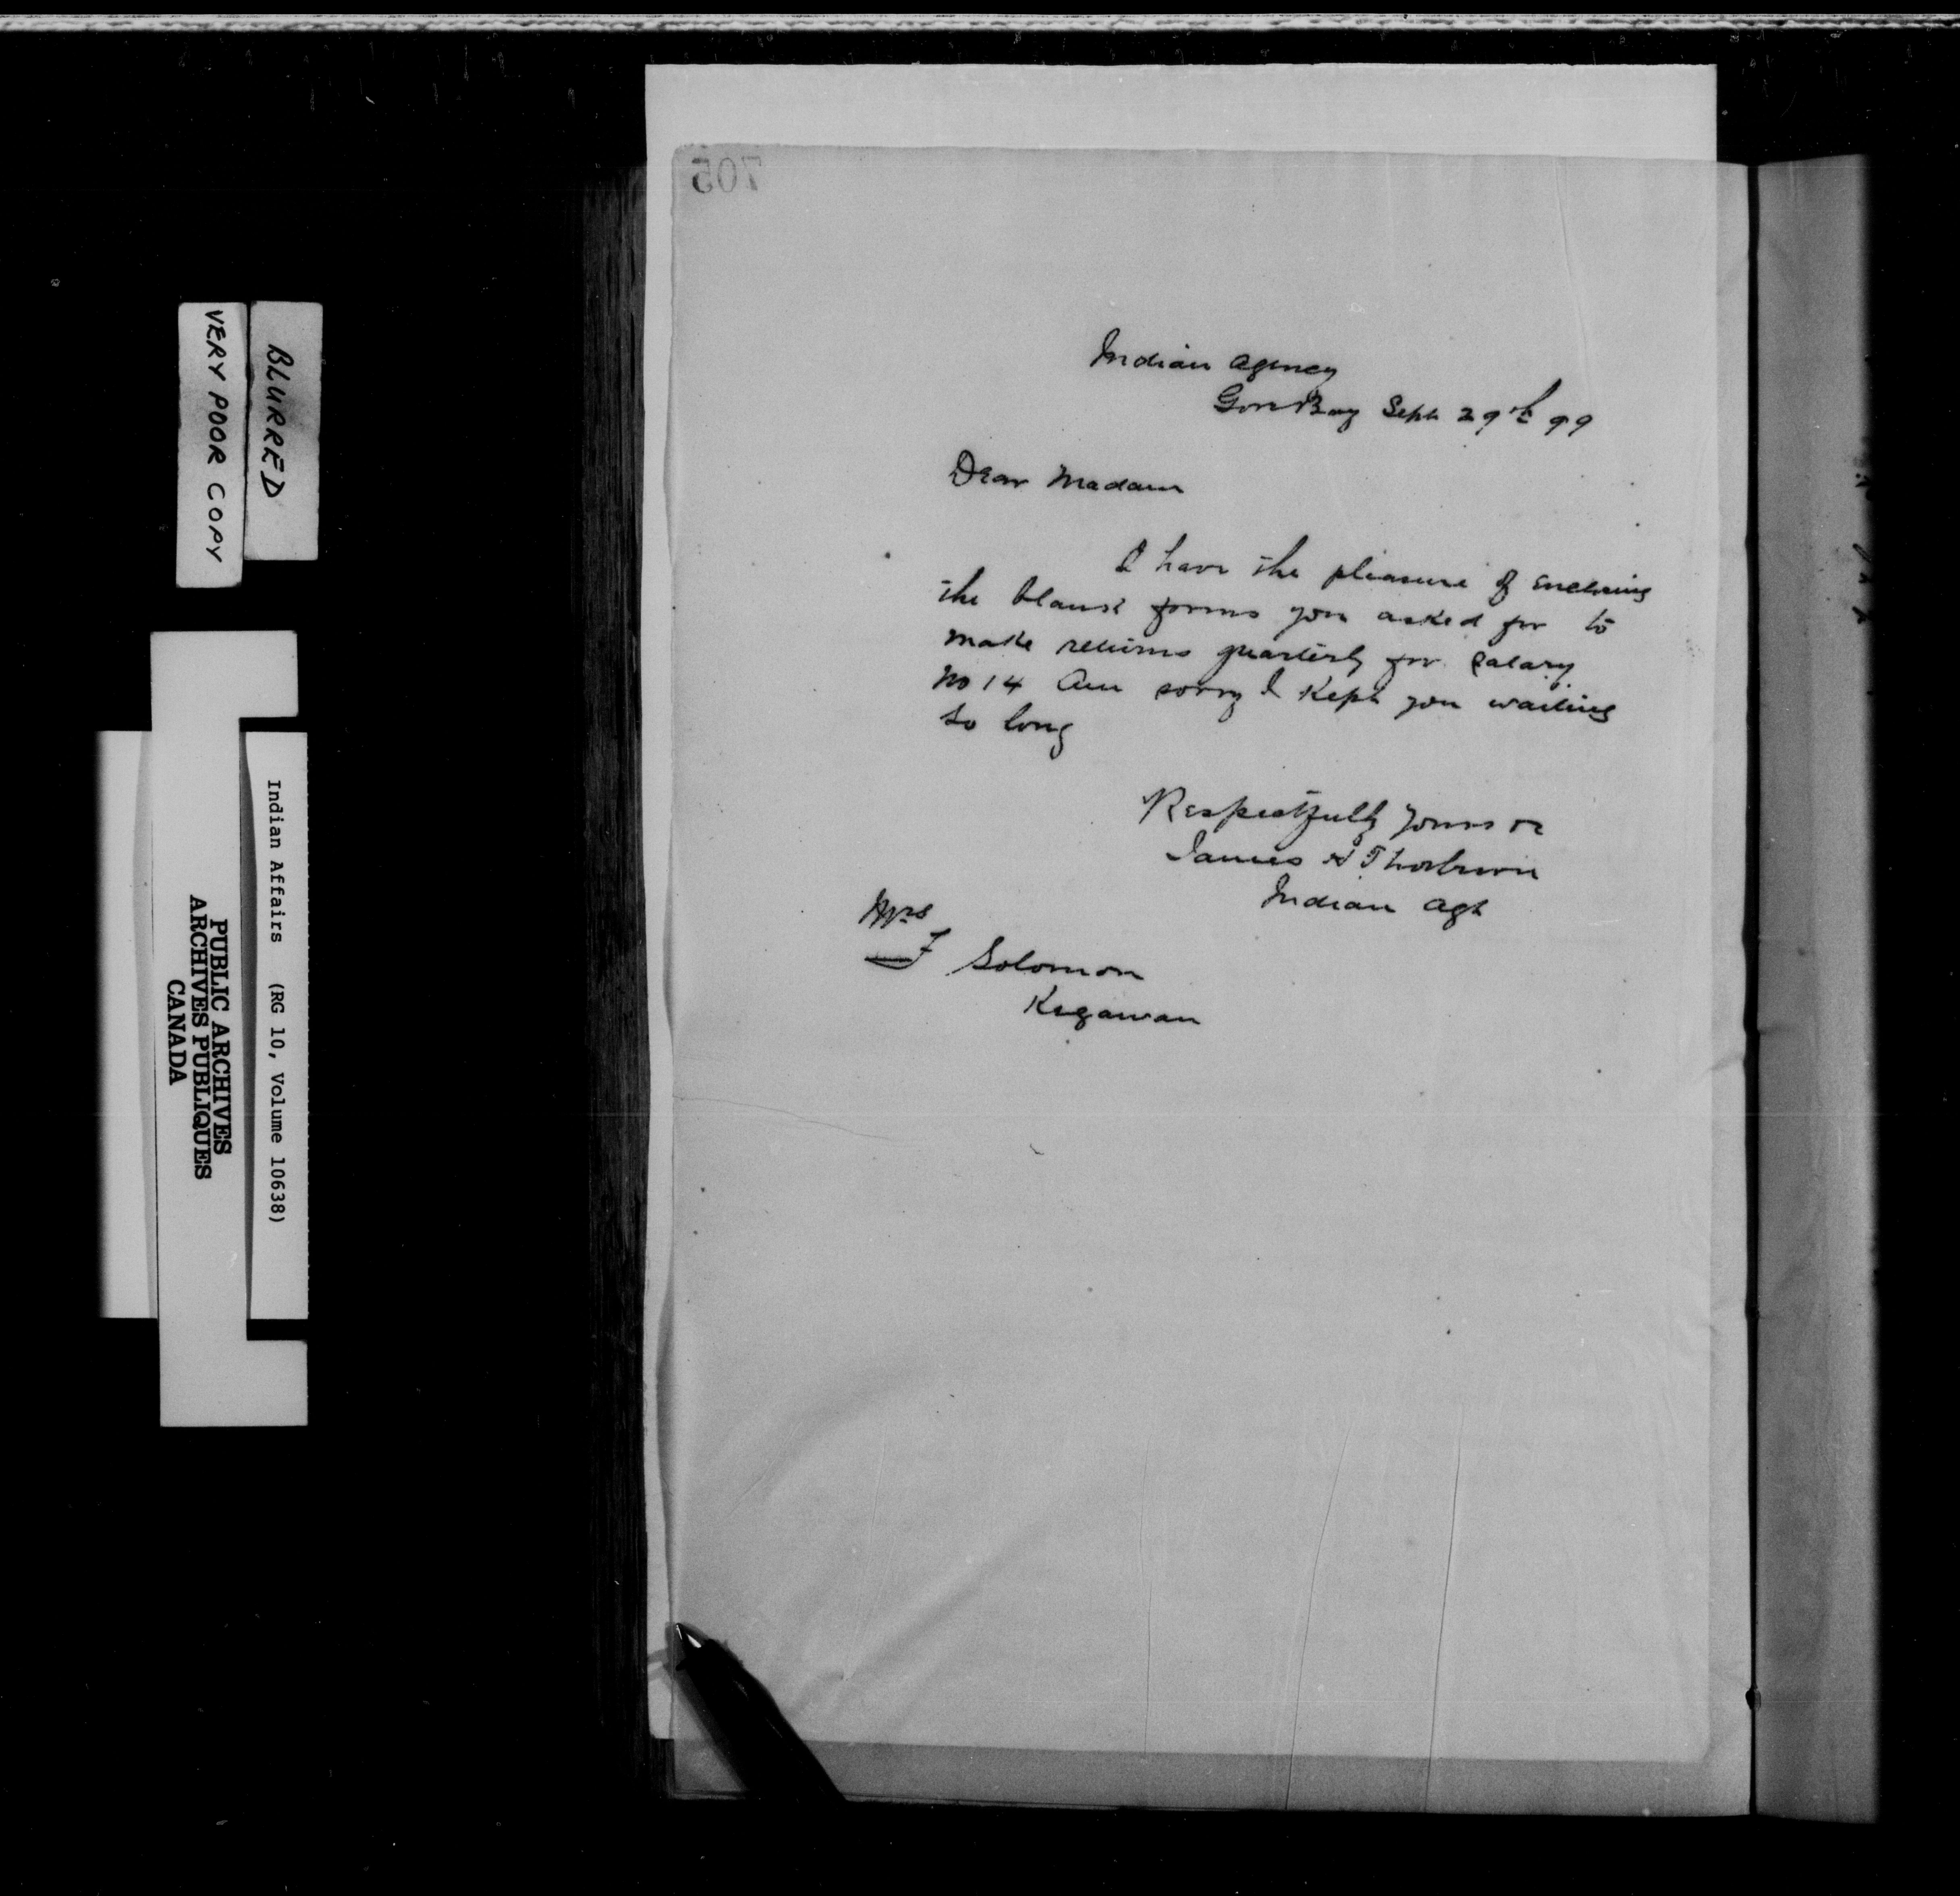 705
Indian Agency
Gore Bay Sept 29th 99
Dear Madam
I have the pleasure of enclosing
the blank forms you asked for to
make returns quarterly for salary
No 14 Am sorry I kept you waiting
so long
Respectfully yours
James H Thorburn
Indian Agt
Mrs
F Solomon
Kegawan
BLURRED
VERY POOR COPY
Indian Affairs (RG 10, Volume 10638)
PUBLIC ARCHIVES
ARCHIVES PUBLIQUES
CANADA